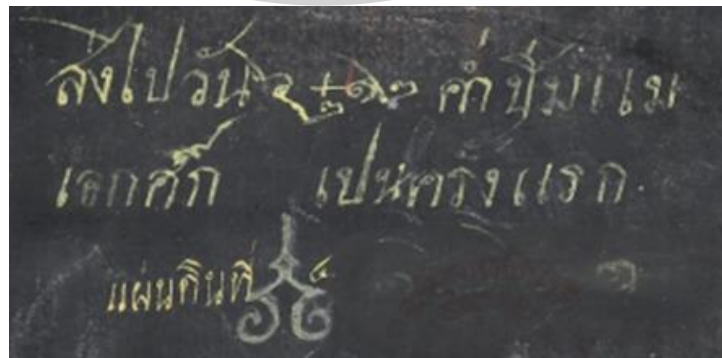 ส่งไปวัน ค่ำปีมแม
เอกศก เปนครั้งแรก
แผ่นดินที่ ๔